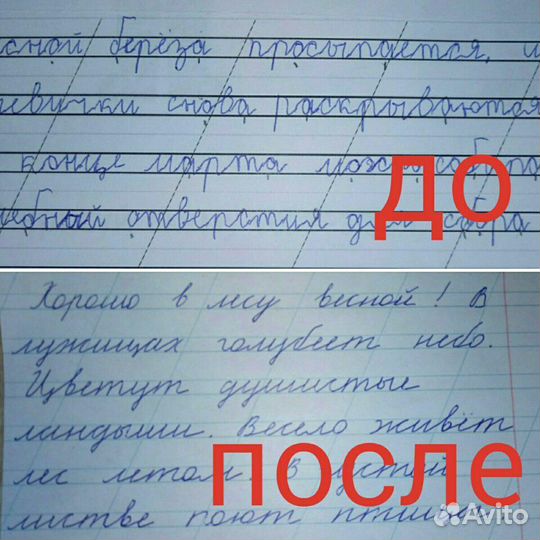 сной берёза просыпается, и
евички снова раскрываются
конце марта можно собира
ебный отверстия для сбора
до
Хорошо в лесу весной! В
лужицах голубеет небо.
Цветут душистые
ландыши. Весело живёт
лес летом. В густой
листве поют птицы.
после
Avito